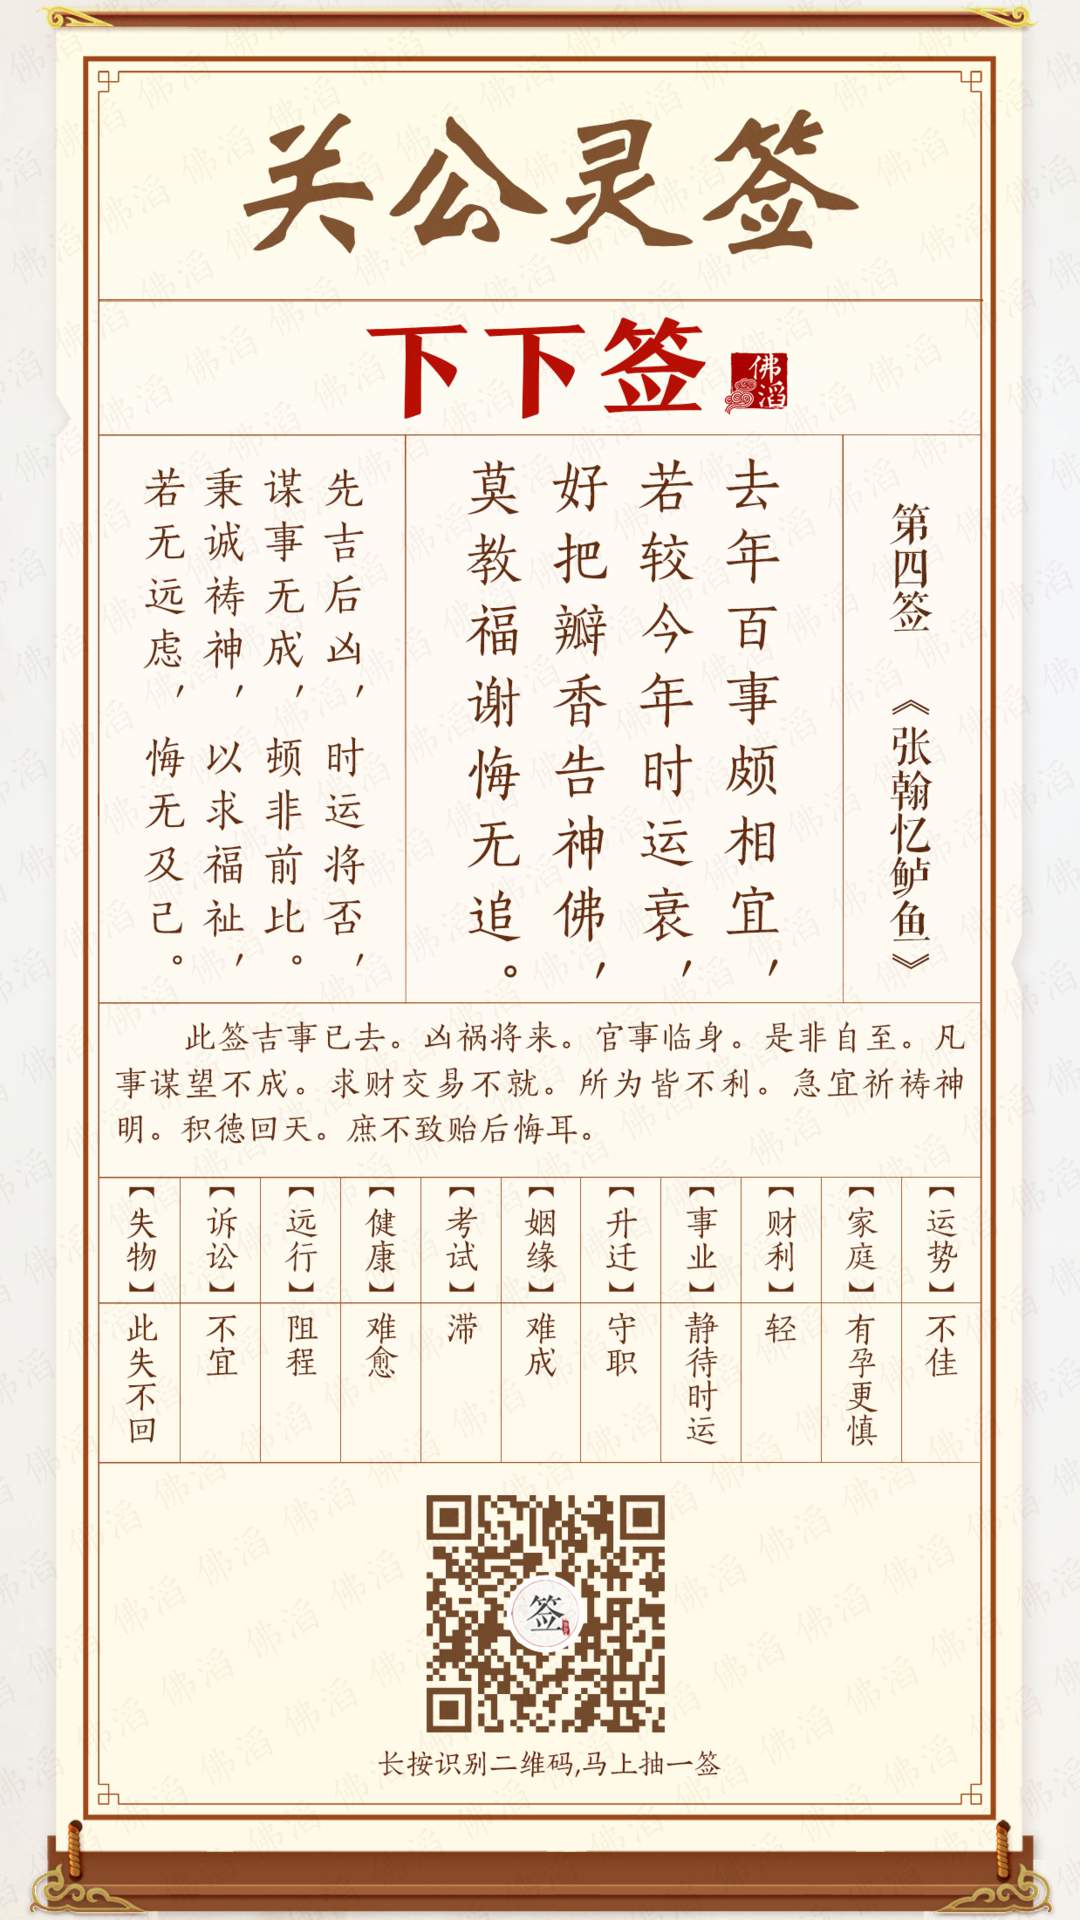 关公灵签
下下签
佛滔
第四签 《张翰忆鲈鱼》
去年百事颇相宜，
若较今年时运衰，
好把瓣香告神佛，
莫教福谢悔无追。
先吉后凶，时运将否，
谋事无成，顿非前比。
秉诚祷神，以求福祉，
若无远虑，悔无及己。
此签吉事已去。凶祸将来。官事临身。是非自至。凡
事谋望不成。求财交易不就。所为皆不利。急宜祈祷神
明。积德回天。庶不致贻后悔耳。
【运势】
不佳
【家庭】
有孕更慎
【财利】
轻
【事业】
静待时运
【升迁】
守职
【姻缘】
难成
【考试】
滞
【健康】
难愈
【远行】
阻程
【诉讼】
不宜
【失物】
此失不回
签
长按识别二维码,马上抽一签